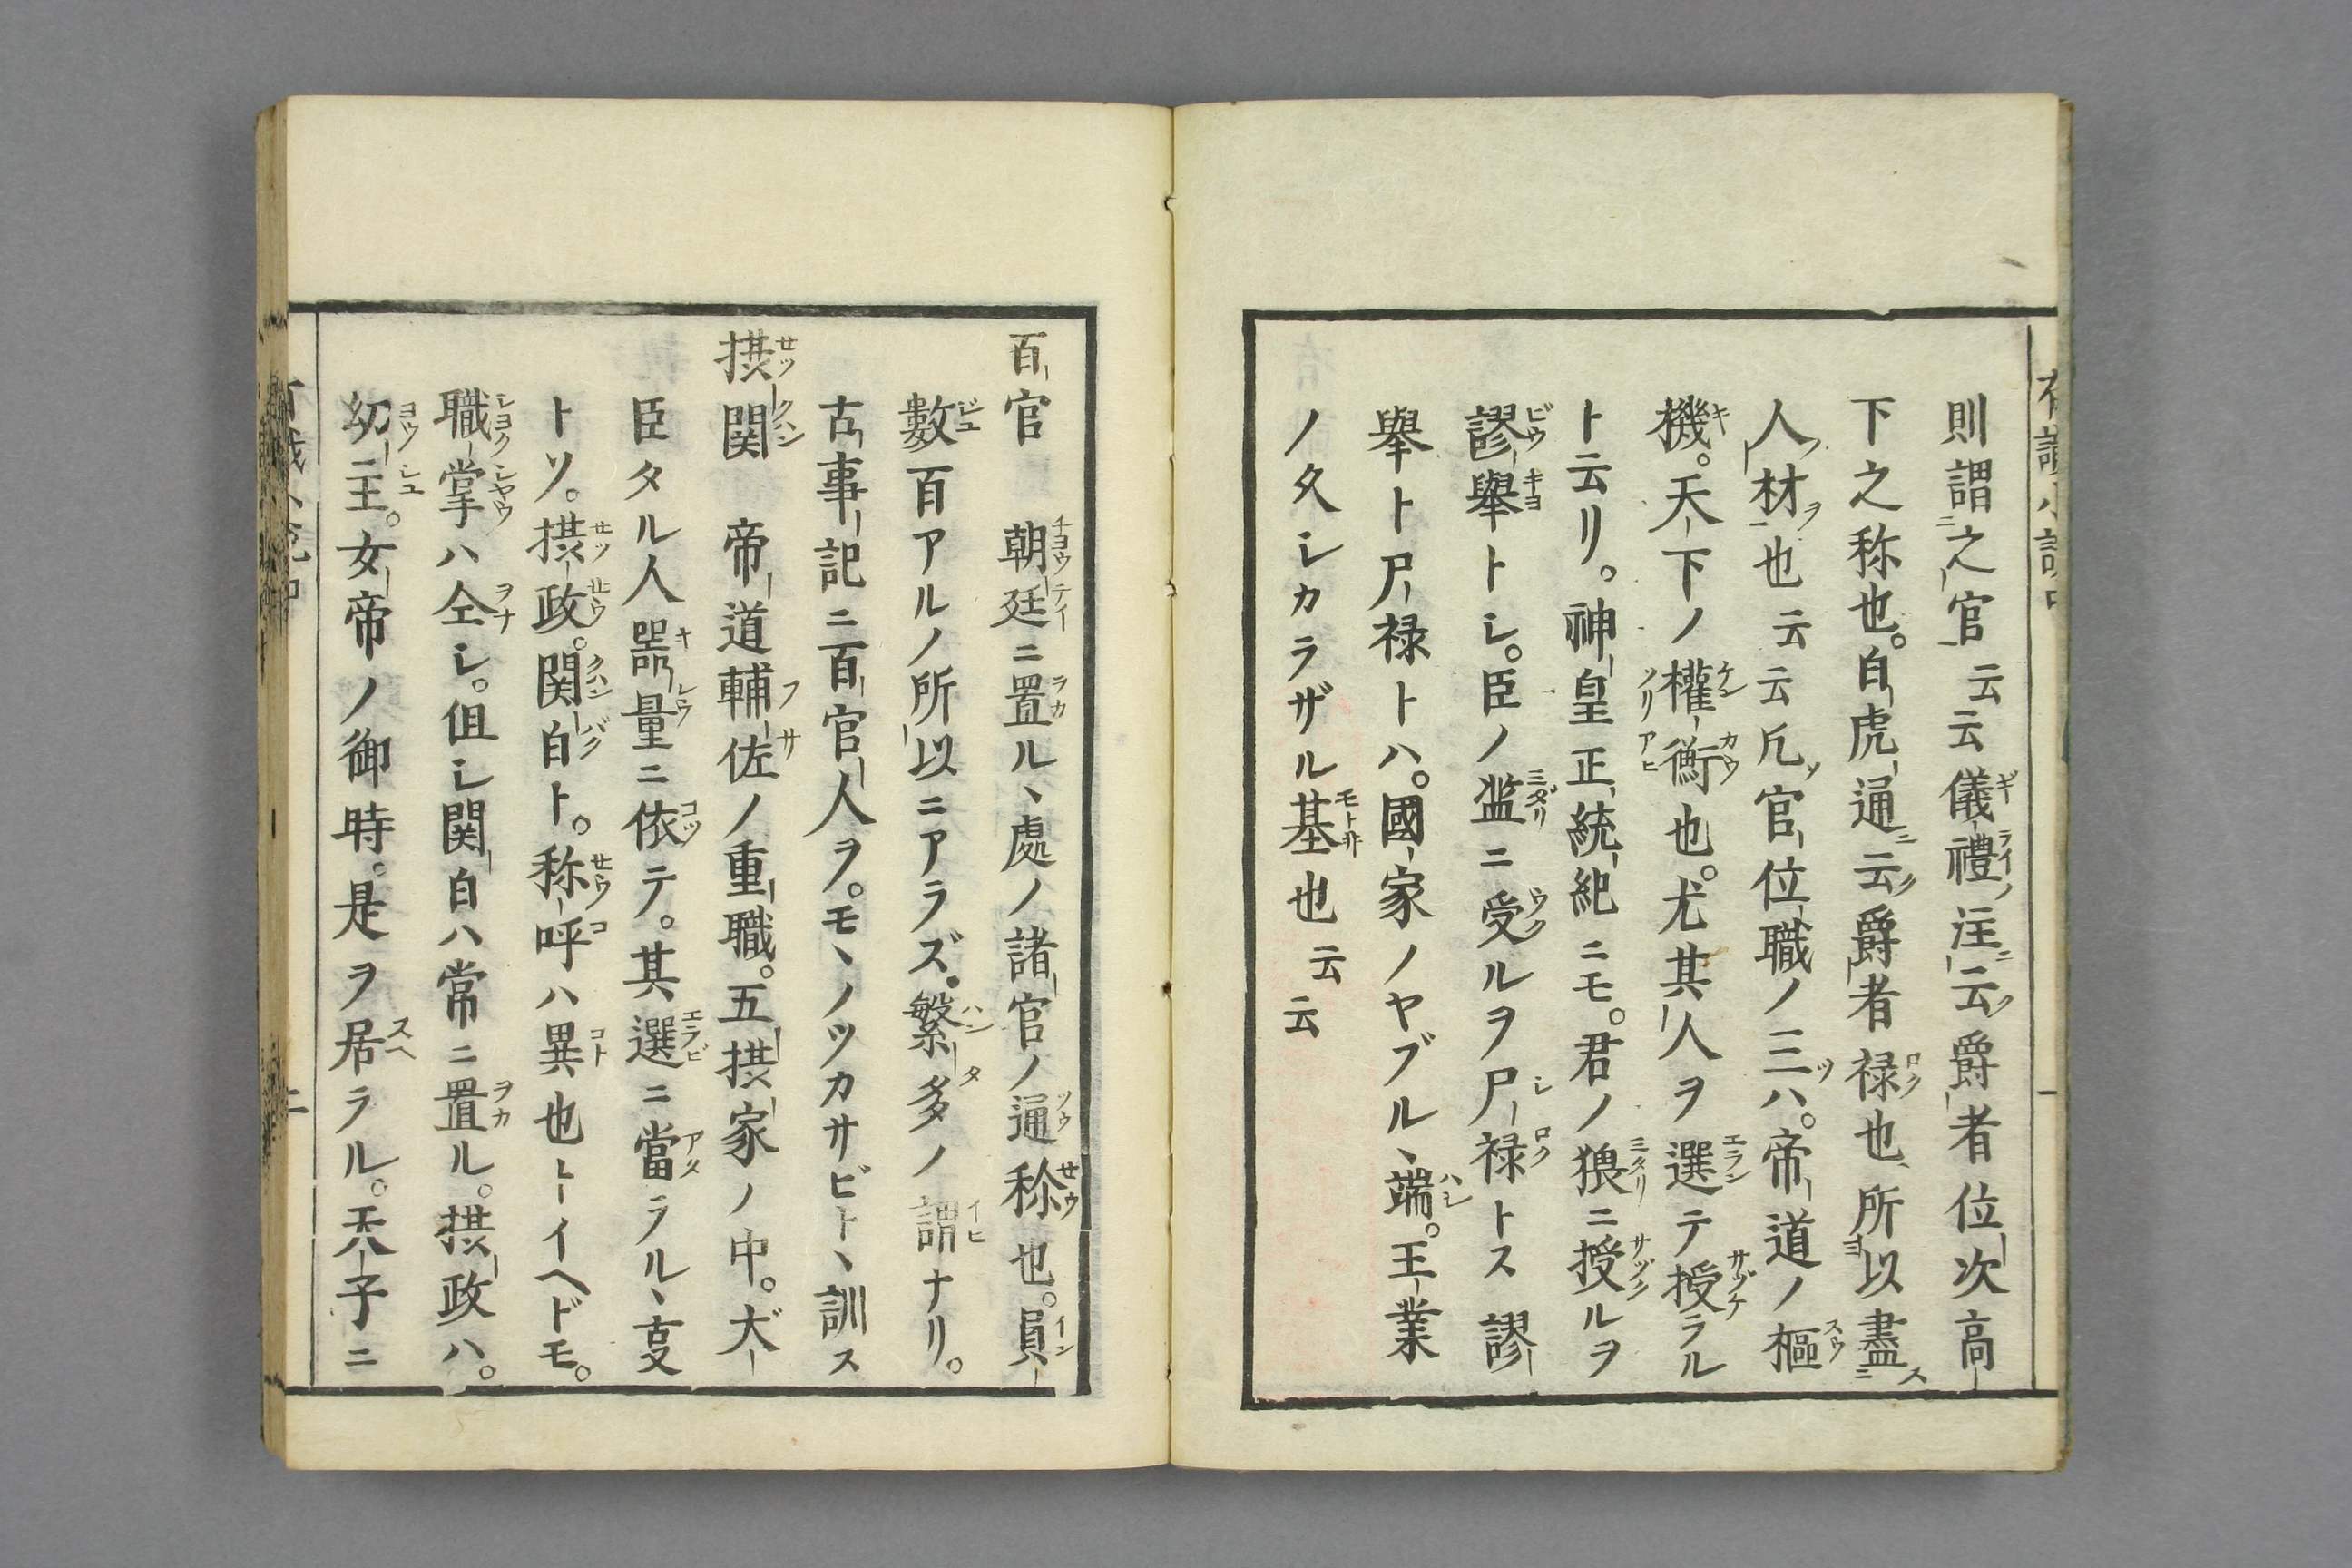 則謂之官云云儀禮注云爵者位次高
下之称也。白虎通云爵者禄也、所以盡
人材也云云凢官位職ノ三ハ。帝道ノ樞
機。天下ノ權衡也。尤其人ヲ選テ授ラル
ト云リ。神皇正統紀ニモ。君ノ猥ニ授ルヲ
謬舉トシ。臣ノ濫ニ受ルヲ尸禄トス謬
舉ト尸禄トハ。國家ノヤブル、端。王業
ノ久シカラザル基也云云
百官 朝廷ニ置ル、處ノ諸官ノ通称也。員
數百アルノ所以ニアラズ。繁多ノ謂ナリ。
古事記ニ百官人ヲ。モ、ノツカサビト、訓ス
摂関 帝道輔佐ノ重職。五摂家ノ中。大
臣タル人器量ニ依テ。其選ニ當ラル、叓
トソ。摂政。関白ト。称呼ハ異也トイヘドモ。
職掌ハ仝シ。但シ関白ハ常ニ置ル。摂政ハ。
幼主。女帝ノ御時。是ヲ居ラル。天子ニ
二